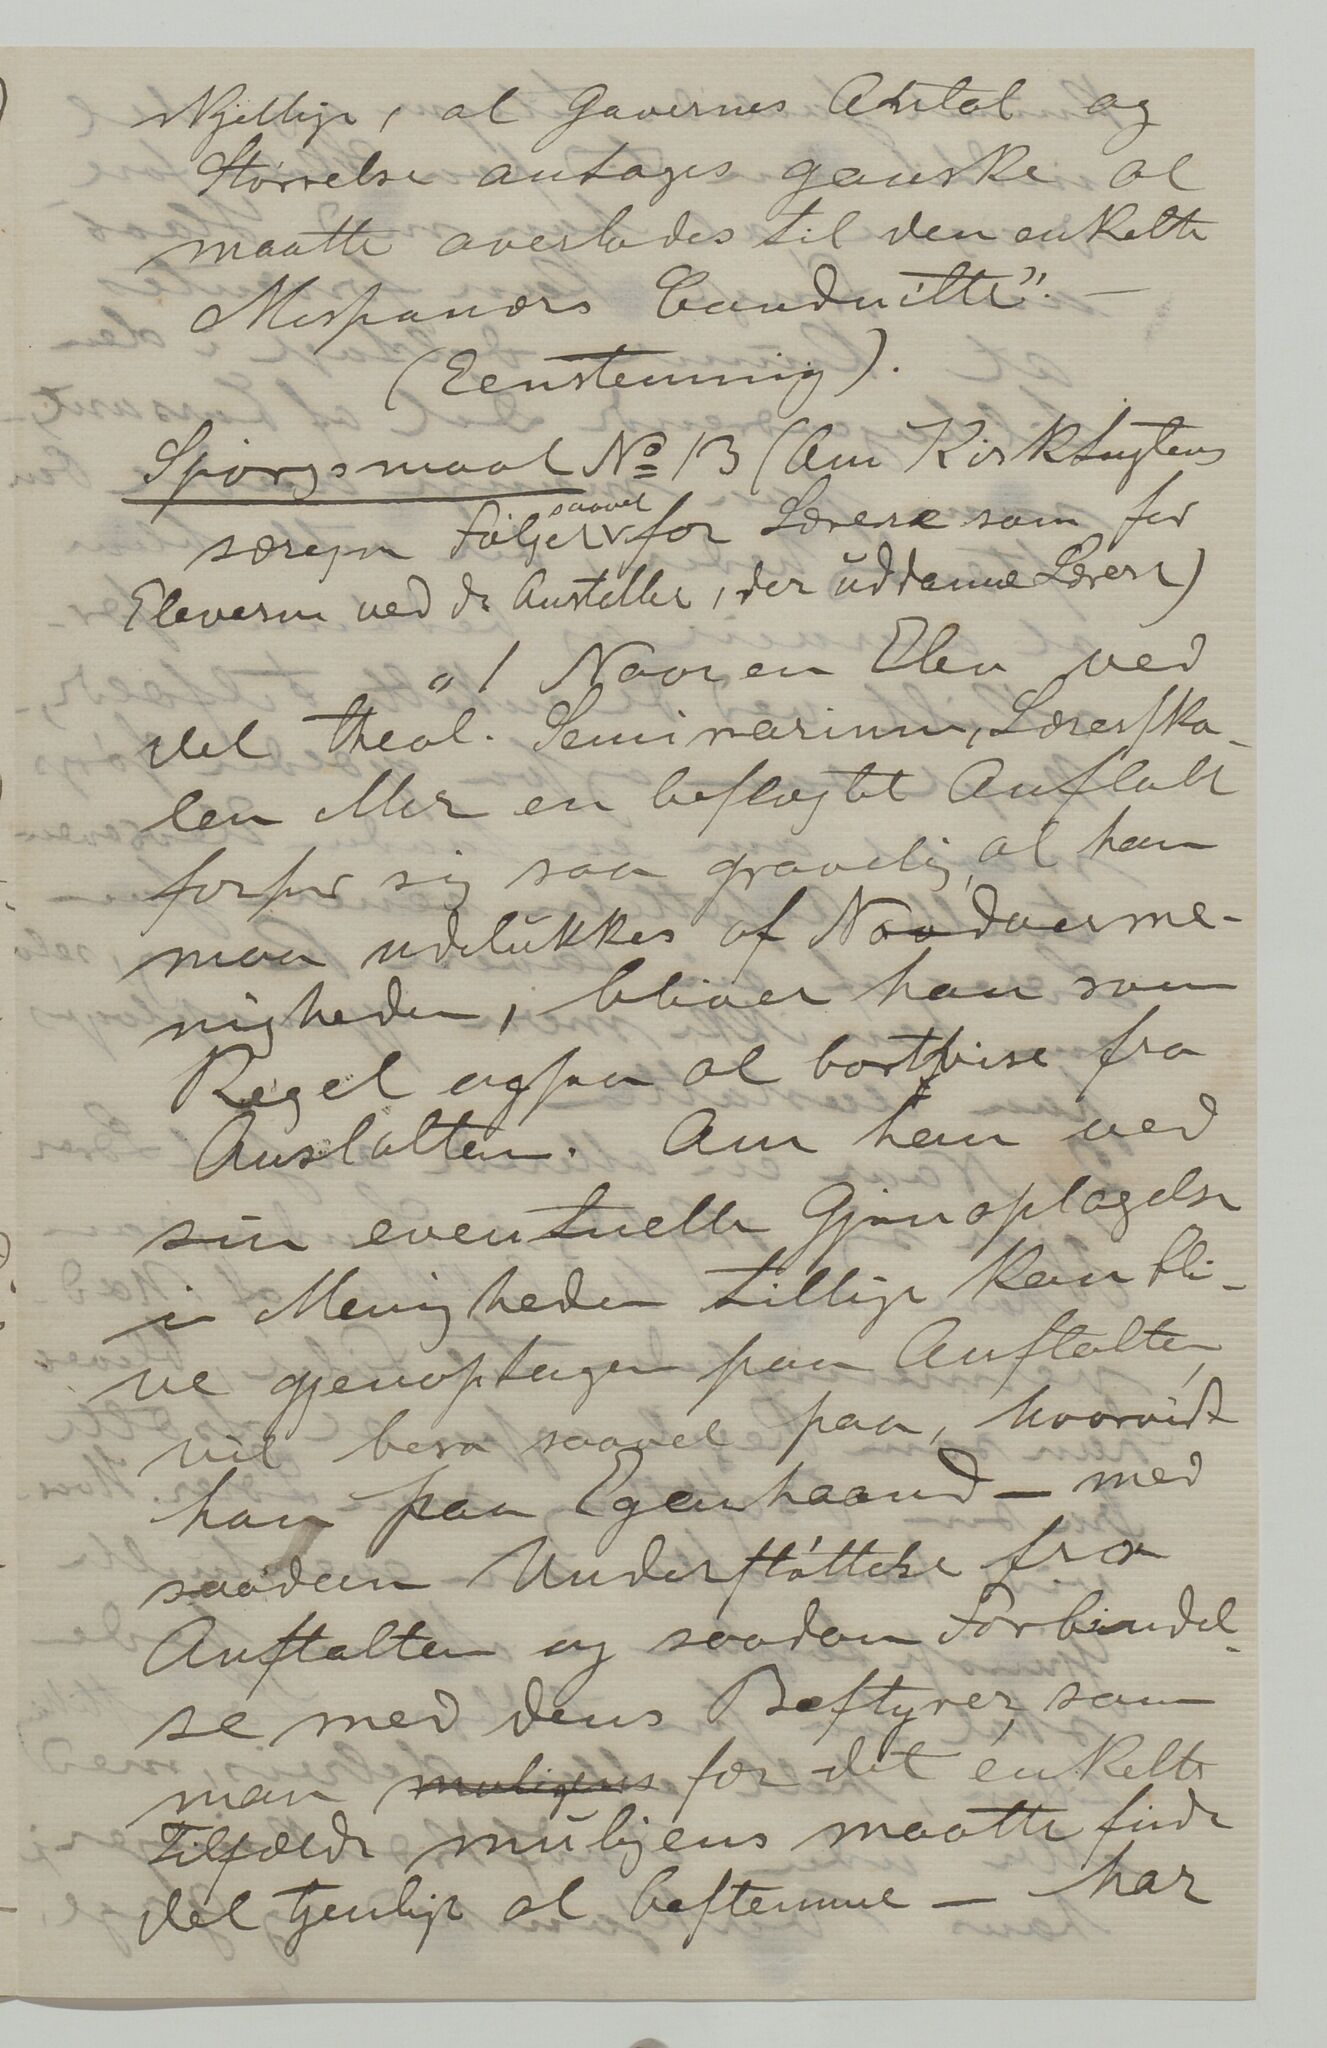 skjellige, at Gavernes Antal og
Størrelse antages ganske at
maatte overlades til den enkelte
Misjonærs Conduitte". —
(Eenstemmig).
Spörgsmaal No 13 (Om Kirketugtens
særegne Følger saavel for Lærere som for
Eleverne ved de Anstalter, der uddanne Lærere)
„1 Naar en Elev ved
det theol. Seminarium, Lærersko-
len eller en beslægtet Anstalt
forser sig saa gravelig, at han
maa udelukkes af Naadverme-
nigheden, bliver han som
Regel ogsaa at bortvise fra
Anstalten. Om han ved
sin eventuelle Gjenoptagelse
i Menigheden tillige kan bli-
ve gjenoptagen paa Anstalten,
vil bero saavel paa, hvorvidt
han paa Egenhaand — med
saadan Understøttelse fra
Anstalten og saadan Forbindel-
se med dens Bestyrer, som
man muligens for det enkelte
Tilfælde muligens maatte finde
det tjenligt at bestemme — har